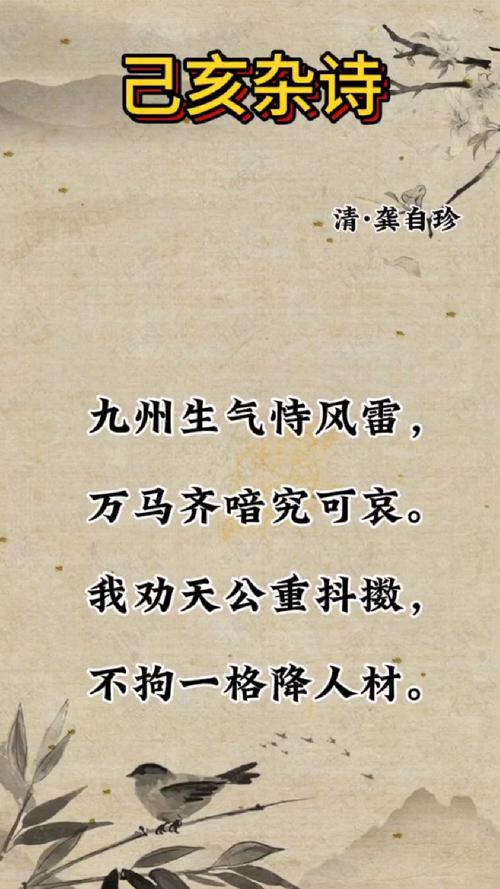 己亥杂诗
清·龚自珍
九州生气恃风雷，
万马齐喑究可哀。
我劝天公重抖擞，
不拘一格降人材。